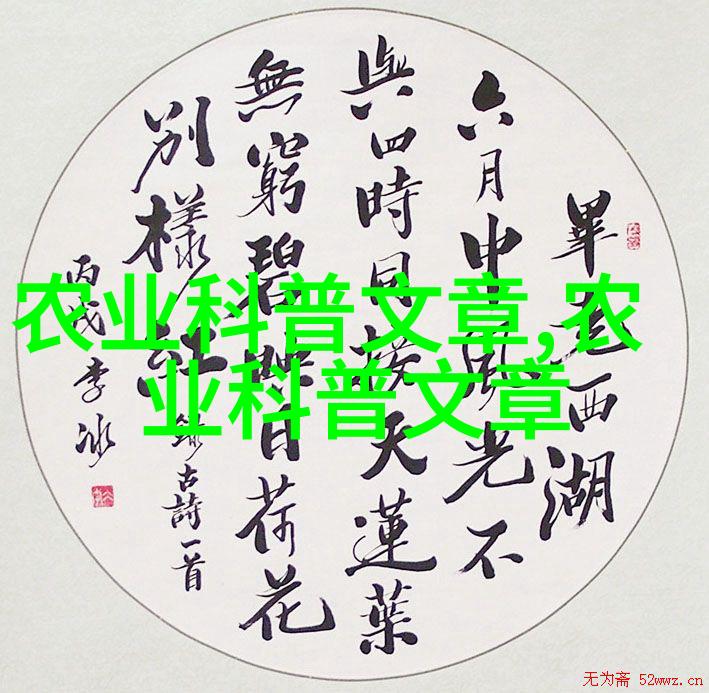 畢竟西湖
六月中風光不
與四時同接天蓮葉
無窮碧映日荷花
別樣紅 錄古詩一首
丙戌李冰
农业科普文章,农
业科普文章
无为斋 52wwz.cn